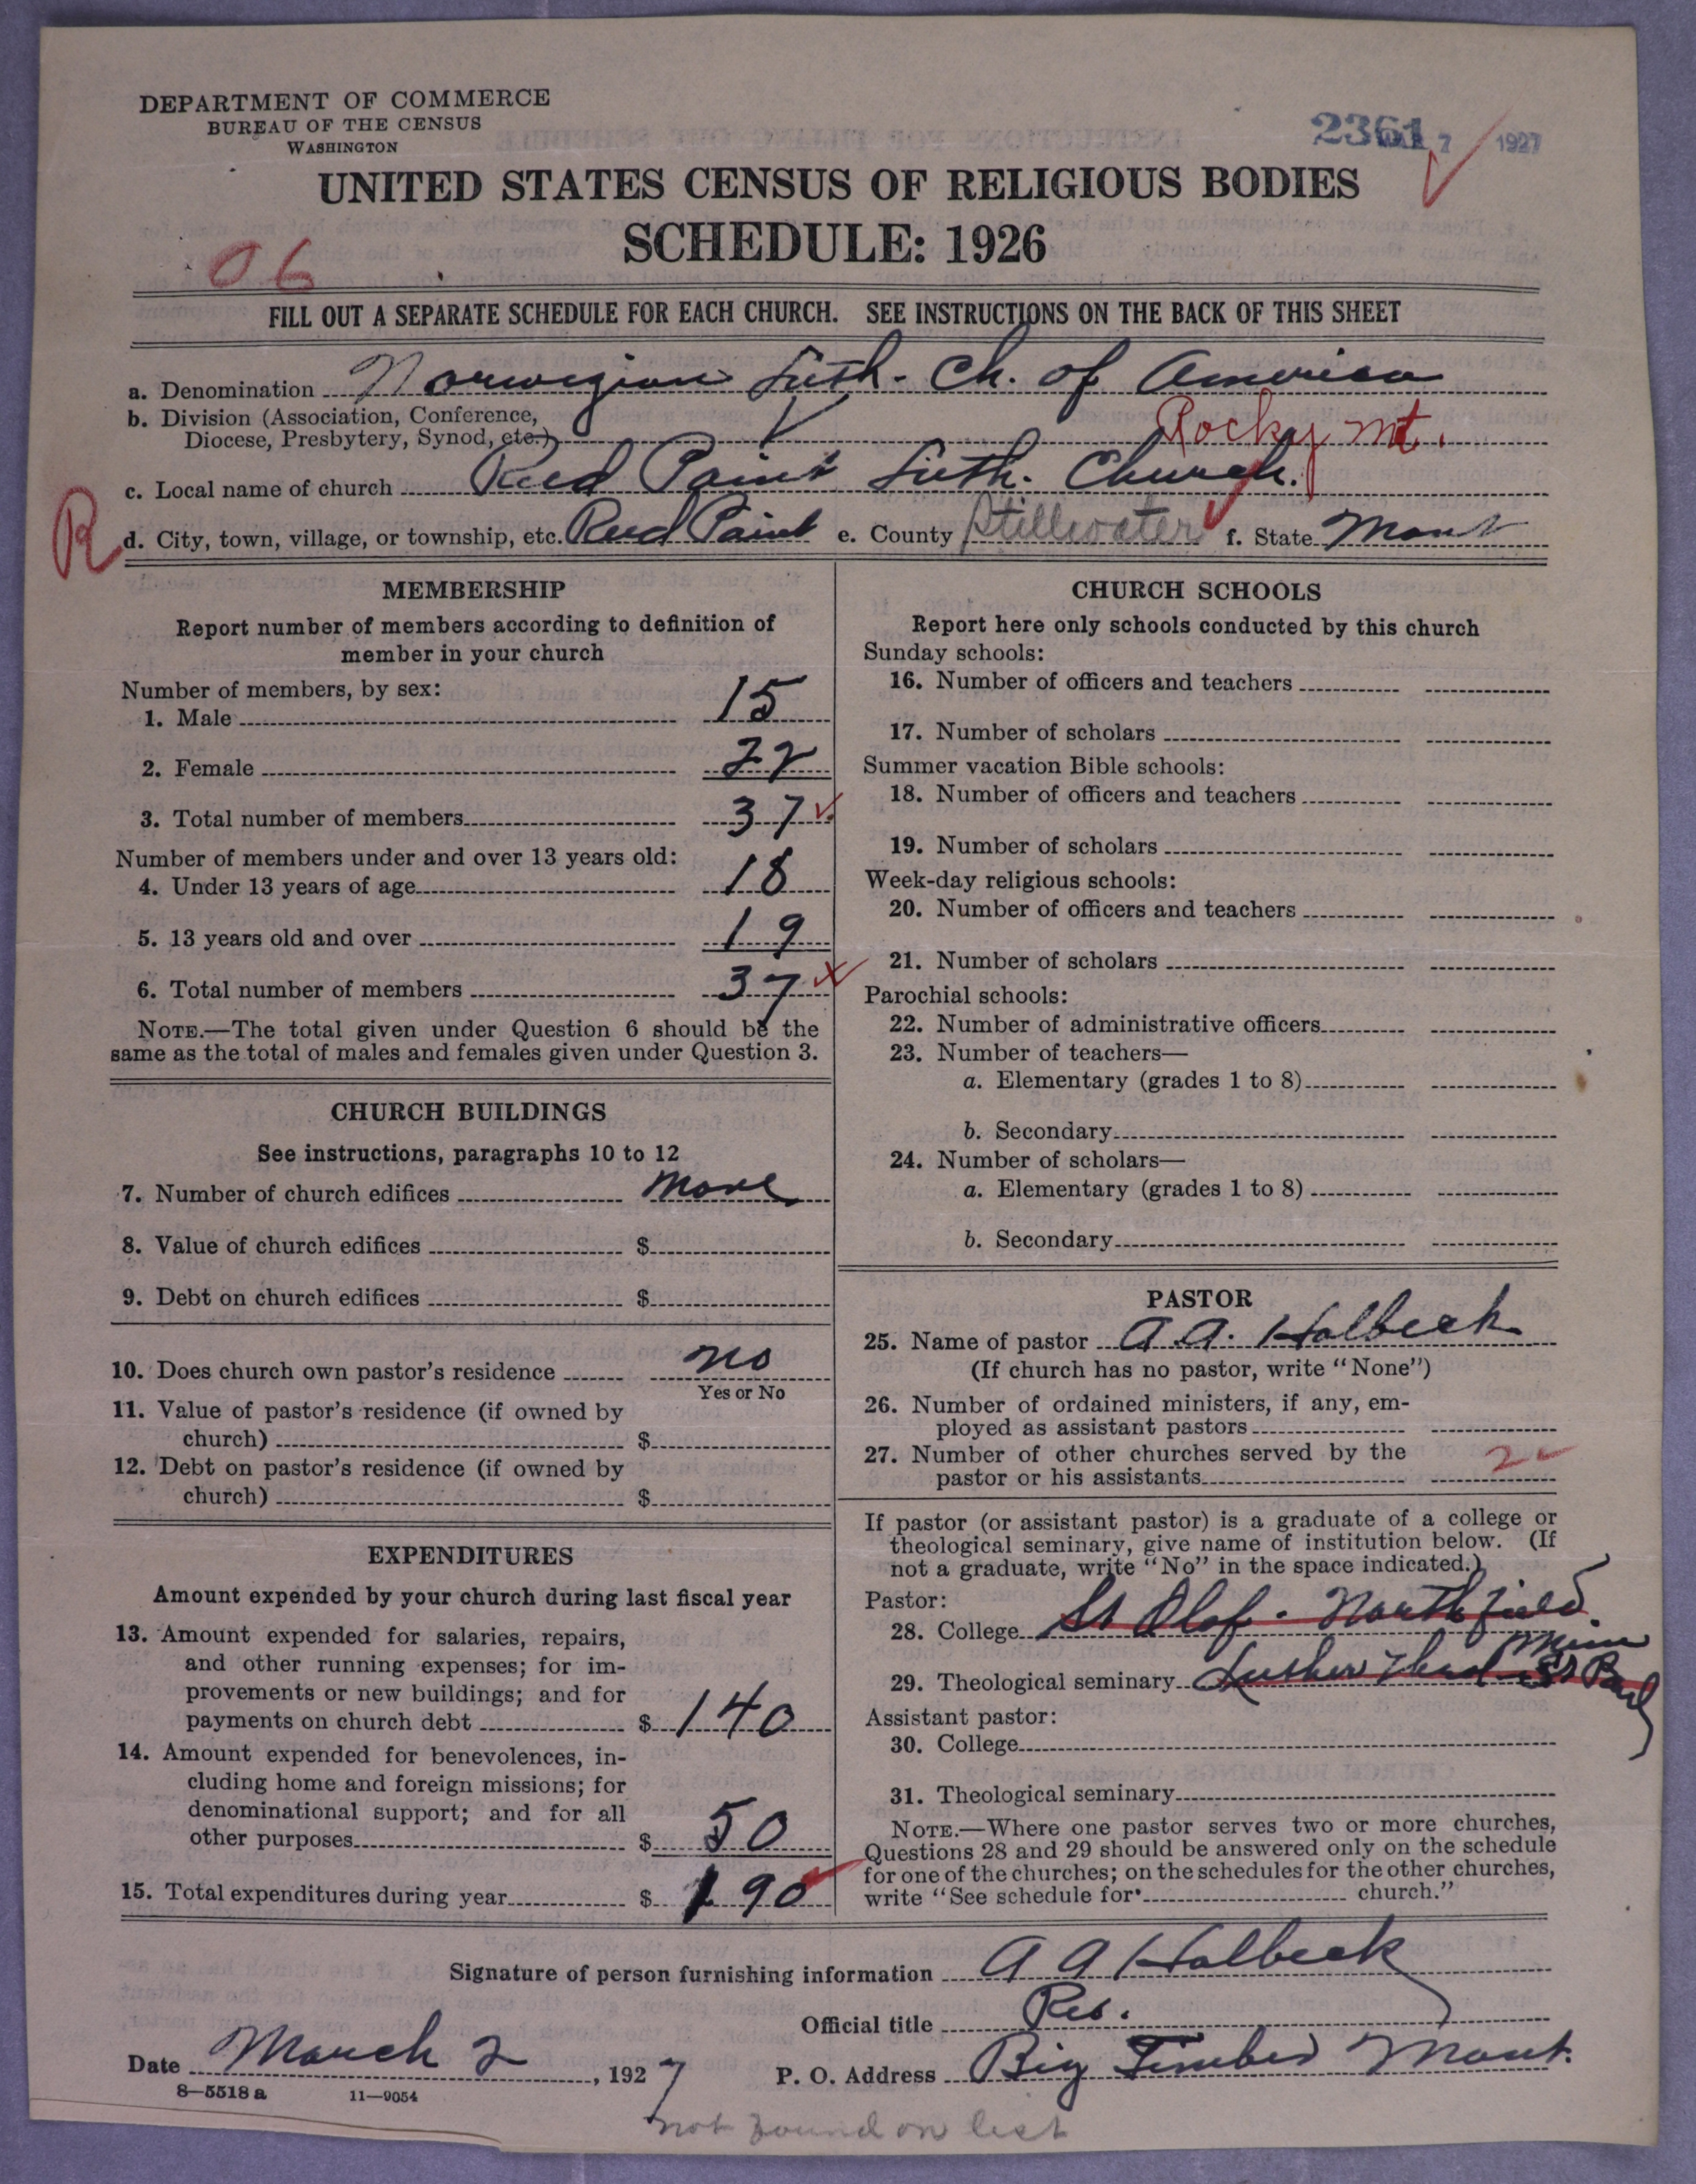 DEPARTMENT OF COMMERCE
BUREAU OF THE CENSUS
WASHINGTON
2361 7 1927
UNITED STATES CENSUS OF RELIGIOUS BODIES
SCHEDULE: 1926
06
FILL OUT A SEPARATE SCHEDULE FOR EACH CHURCH. SEE INSTRUCTIONS ON THE BACK OF THIS SHEET
a. Denomination Norwegian Luth. Ch. of America
b. Division (Association, Conference,
Diocese, Presbytery, Synod, etc.) Rocky Mt.
c. Local name of church Reed Point Luth. Church.
R
d. City, town, village, or township, etc. Reed Point e. County Stillwater f. State Mont
MEMBERSHIP
Report number of members according to definition of
member in your church
Number of members, by sex:
1. Male 15
2. Female 22
3. Total number of members 37
Number of members under and over 13 years old:
4. Under 13 years of age 18
5. 13 years old and over 19
6. Total number of members 37
NOTE.—The total given under Question 6 should be the
same as the total of males and females given under Question 3.
CHURCH BUILDINGS
See instructions, paragraphs 10 to 12
7. Number of church edifices None
8. Value of church edifices $
9. Debt on church edifices $
10. Does church own pastor's residence no
Yes or No
11. Value of pastor's residence (if owned by
church) $
12. Debt on pastor's residence (if owned by
church) $
EXPENDITURES
Amount expended by your church during last fiscal year
13. Amount expended for salaries, repairs,
and other running expenses; for im-
provements or new buildings; and for
payments on church debt $ 140
14. Amount expended for benevolences, in-
cluding home and foreign missions; for
denominational support; and for all
other purposes $ 50
15. Total expenditures during year $ 190
CHURCH SCHOOLS
Report here only schools conducted by this church
Sunday schools:
16. Number of officers and teachers
17. Number of scholars
Summer vacation Bible schools:
18. Number of officers and teachers
19. Number of scholars
Week-day religious schools:
20. Number of officers and teachers
21. Number of scholars
Parochial schools:
22. Number of administrative officers
23. Number of teachers—
a. Elementary (grades 1 to 8)
b. Secondary
24. Number of scholars—
a. Elementary (grades 1 to 8)
b. Secondary
PASTOR
25. Name of pastor A. A. Holbeck
(If church has no pastor, write "None")
26. Number of ordained ministers, if any, em-
ployed as assistant pastors
27. Number of other churches served by the
pastor or his assistants 2
If pastor (or assistant pastor) is a graduate of a college or
theological seminary, give name of institution below. (If
not a graduate, write "No" in the space indicated.)
Pastor:
28. College St Olaf - Northfield. Minn
29. Theological seminary Luther St Paul
Assistant pastor:
30. College
31. Theological seminary
NOTE.—Where one pastor serves two or more churches,
Questions 28 and 29 should be answered only on the schedule
for one of the churches; on the schedules for the other churches,
write "See schedule for church."
Signature of person furnishing information A A Holbeck
Official title Rev.
Date March 2, 1927 P. O. Address Big Timber Mont.
8—5518 a 11—9054
not found on list